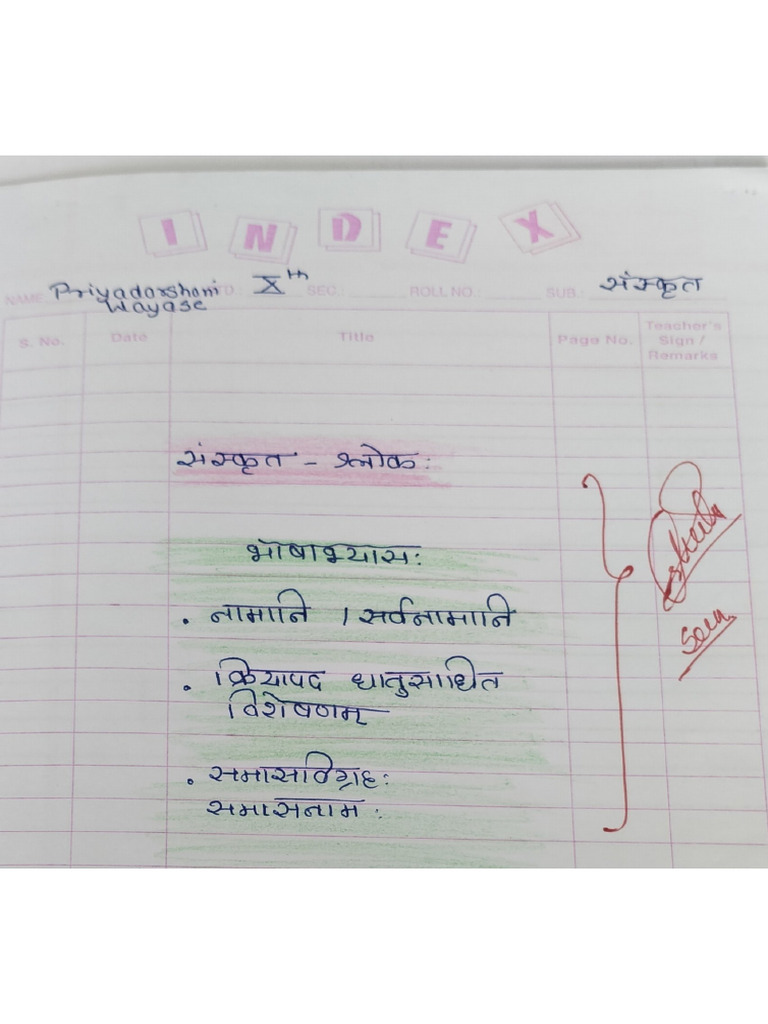 INDEX
NAME: Priyadarshani STD.: Xth SEC.: ROLL NO.: SUB.: संस्कृत
Wayase
S. No. Date Title Page No. Teacher's Sign / Remarks
संस्कृत - श्लोकः
भाषाभ्यासः
• नामानि / सर्वनामानि
• क्रियापद धातुसाधित
विशेषणम्
• समासविग्रहः
समासनामः
Seen